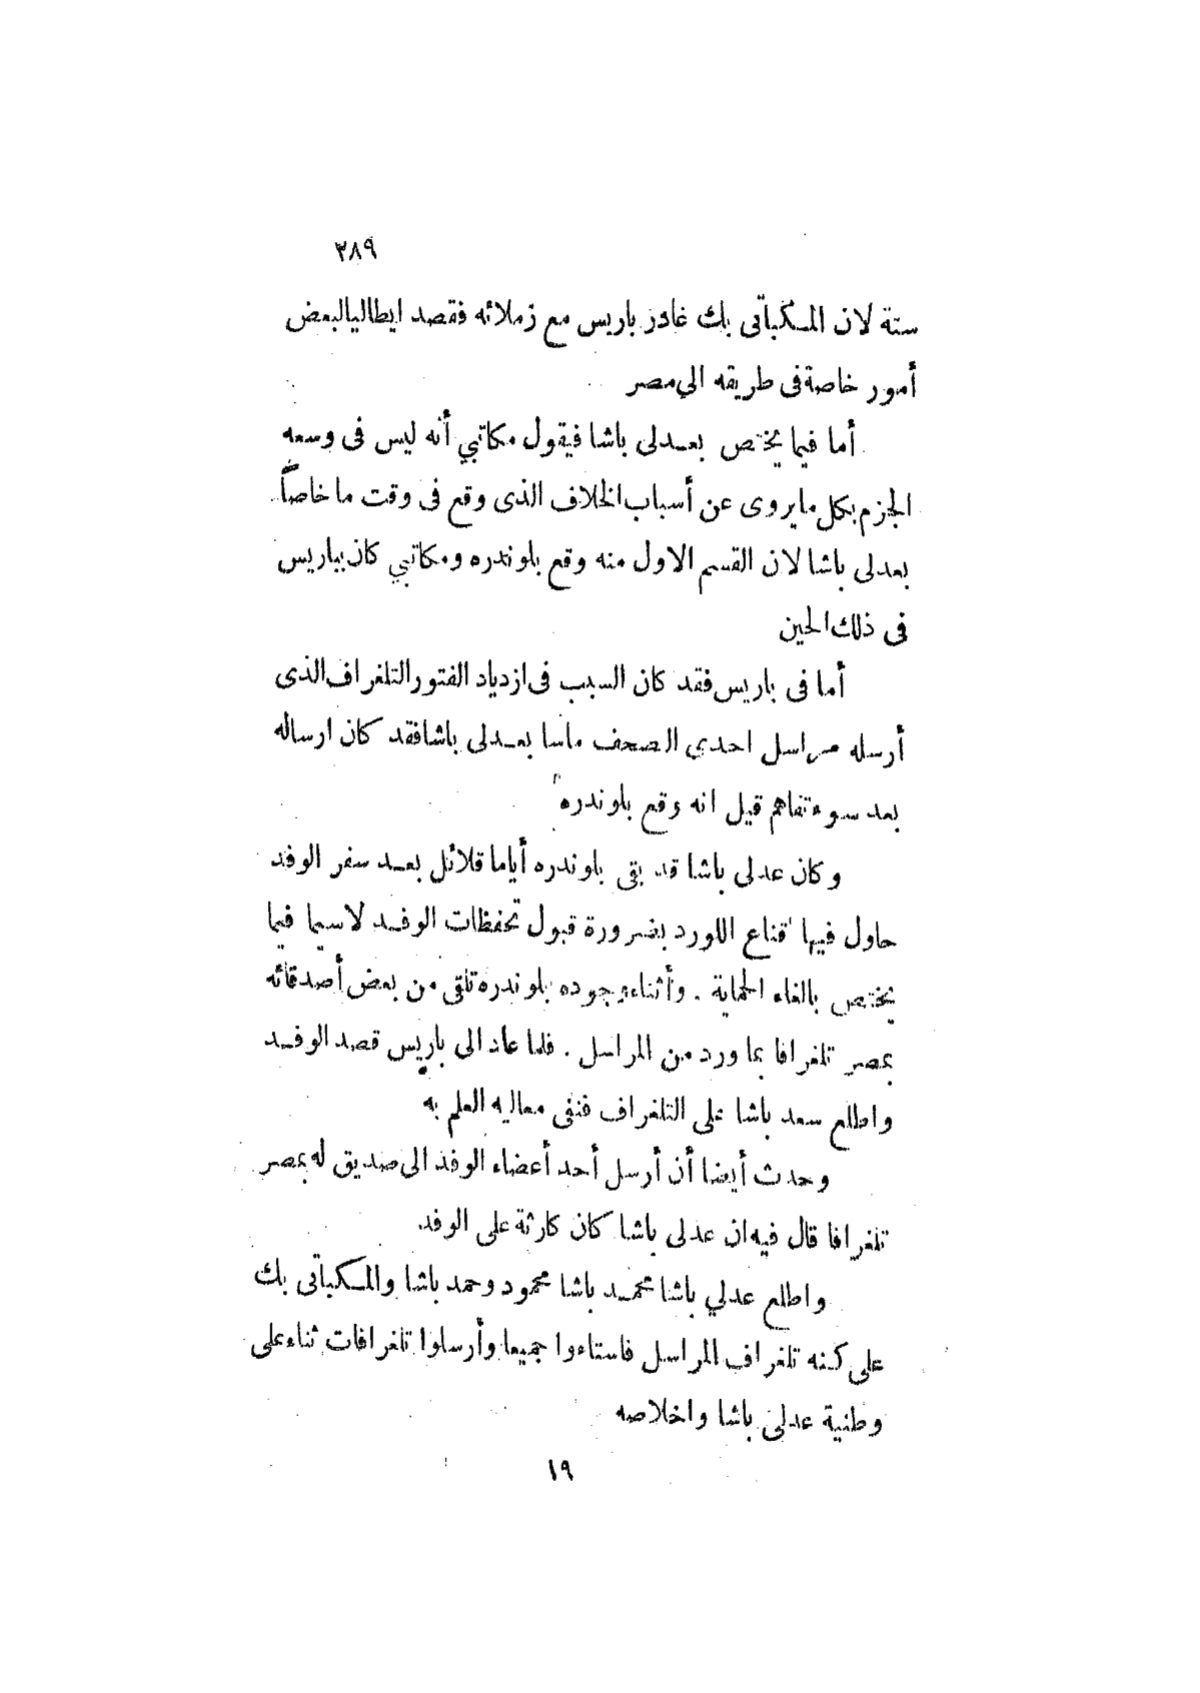 ٢٨٩
ستة لان المكباتى بك غادر باريس مع زملائه فقصد ايطاليا لبعض
أمور خاصة فى طريقه الي مصر
أما فيما يختص بعدلى باشا فيقول مكاتبي أنه ليس فى وسعه
الجزم بكل ما يروى عن أسباب الخلاف الذى وقع فى وقت ما خاصاً
بعدلى باشا لان القسم الاول منه وقع بلوندره ومكاتبي كان بباريس
فى ذلك الحين
أما فى باريس فقد كان السبب فى ازدياد الفتور التلغراف الذى
أرسله مراسل احدي الصحف ماسا بعدلى باشا فقد كان ارساله
بعد سوء تفاهم قيل انه وقع بلوندره
وكان عدلى باشا قد بقى بلوندره أياما قلائل بعد سفر الوفد
حاول فيها اقناع اللورد بضرورة قبول تحفظات الوفد لاسيما فيما
يختص بالغاء الحماية . وأثناء وجوده بلوندره تلقى من بعض أصدقائه
بمصر تلغرافا بما ورد من المراسل . فلما عاد الى باريس قصد الوفد
واطلع سعد باشا على التلغراف فنفى معاليه العلم به
وحدث أيضا أن أرسل أحد أعضاء الوفد الى صديق له بمصر
تلغرافا قال فيه ان عدلى باشا كان كارثة على الوفد
واطلع عدلي باشا محمد باشا محمود وحمد باشا والمكباتى بك
على كنه تلغراف المراسل فاستاءوا جميعا وأرسلوا تلغرافات ثناء على
وطنية عدلى باشا واخلاصه
١٩